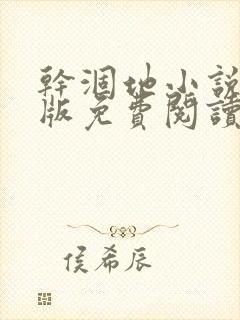 幹涸地小說
版免費閱讀
侯希辰